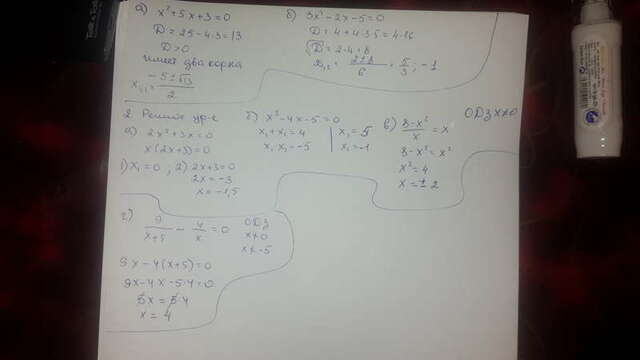 а) x²+5x+3=0
D=25-4·3=13
D>0
имеет два корня
x₁,₂ = (-5±√13)/2
б) 3x²-2x-5=0
D=4+4·3·5=4·16
√D=2·4=8
x₁,₂= (2±8)/6 = 5/3; -1
2 Решить ур-е
а) 2x²+3x=0
x(2x+3)=0
1) x₁=0; 2) 2x+3=0
2x=-3
x=-1,5
б) x²-4x-5=0
x₁+x₂=4
x₁x₂=-5
x₂=5
x₁=-1
в) (8-x²)/x = x
ОДЗ x≠0
8-x²=x²
x²=4
x=±2
г) 9/(x+5) - 4/x = 0
ОДЗ
x≠0
x≠-5
9x-4(x+5)=0
9x-4x-5·4=0
5x=5·4
x=4